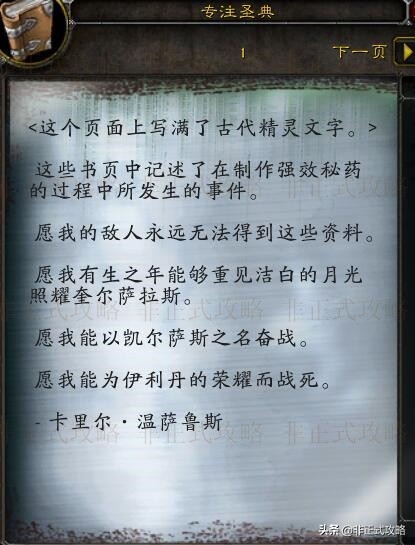 专注圣典
1
下一页
<这个页面上写满了古代精灵文字。>
这些书页中记述了在制作强效秘药
的过程中所发生的事件。
愿我的敌人永远无法得到这些资料。
愿我有生之年能够重见洁白的月光
照耀奎尔萨拉斯。
愿我能以凯尔萨斯之名奋战。
愿我能为伊利丹的荣耀而战死。
- 卡里尔·温萨鲁斯
非正式攻略
非正式攻略
头条 @非正式攻略